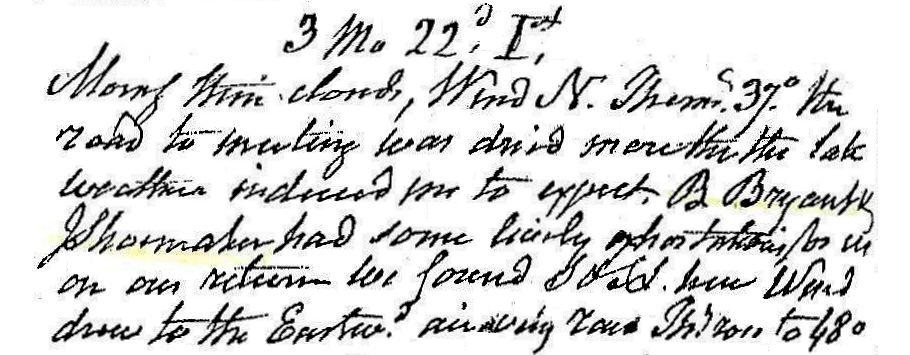 3 Mo 22d. 1st.
Morng thin clouds, Wind N. Therm. 37° the
road to meeting was dried more than the late
weather induced me to expect. B Bryant &
J Shoemaker had some lively exhortations for us
on our return we found I & S. here Wind
drew to the Eastwd. air very raw Thr rose to 48°